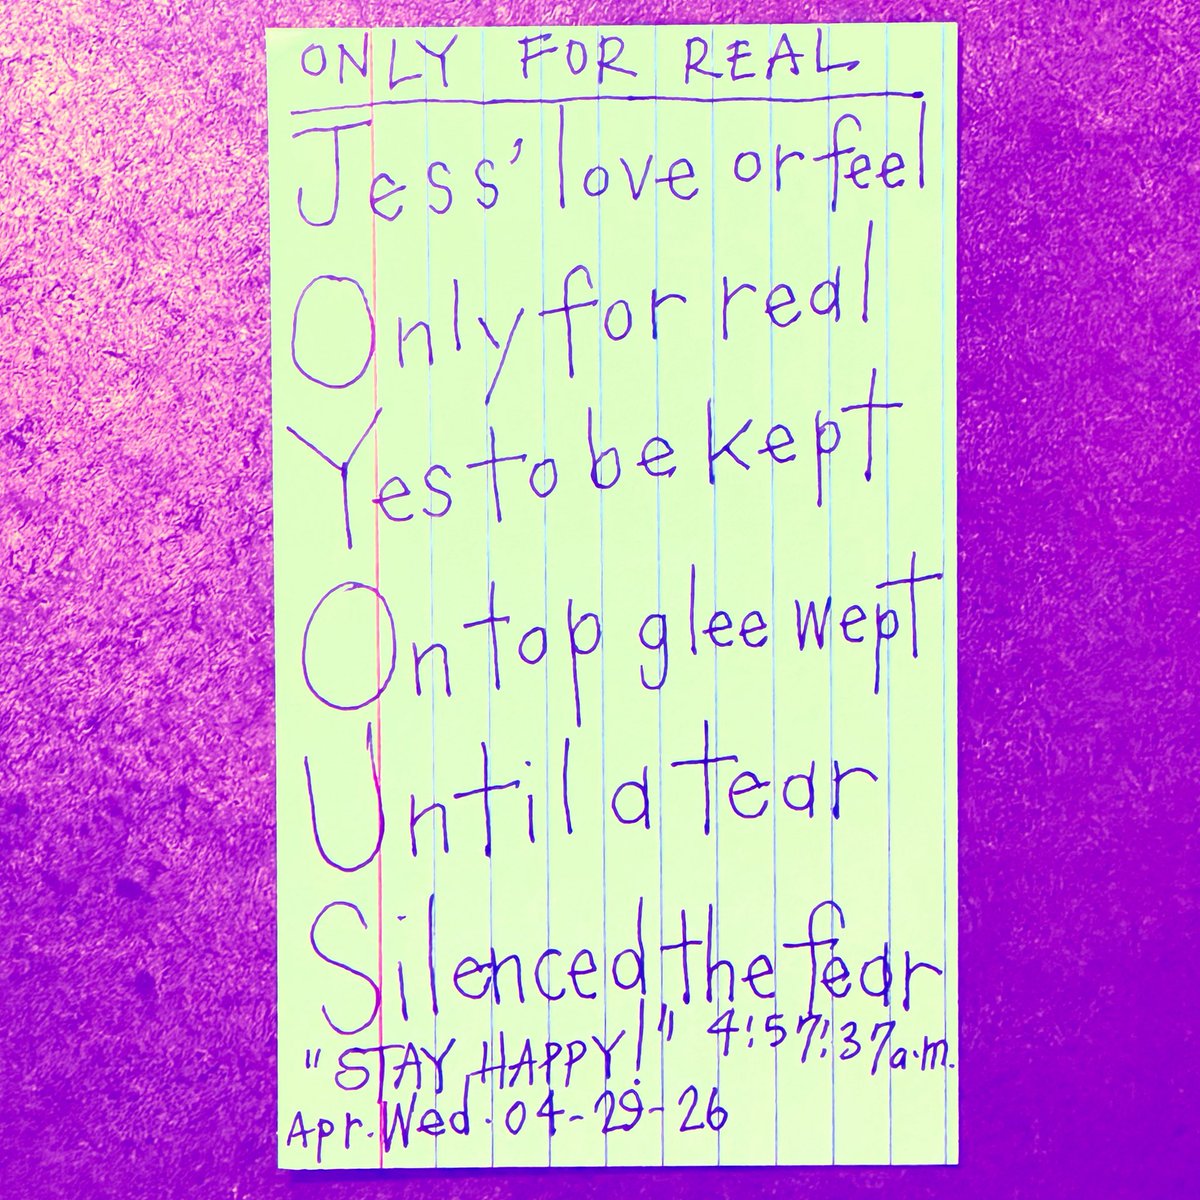 ONLY FOR REAL
Jess' love or feel
Only for real
Yes to be kept
On top glee wept
Until a tear
Silenced the fear
"STAY HAPPY!" 4:57:37a.m.
Apr. Wed. 04-29-26